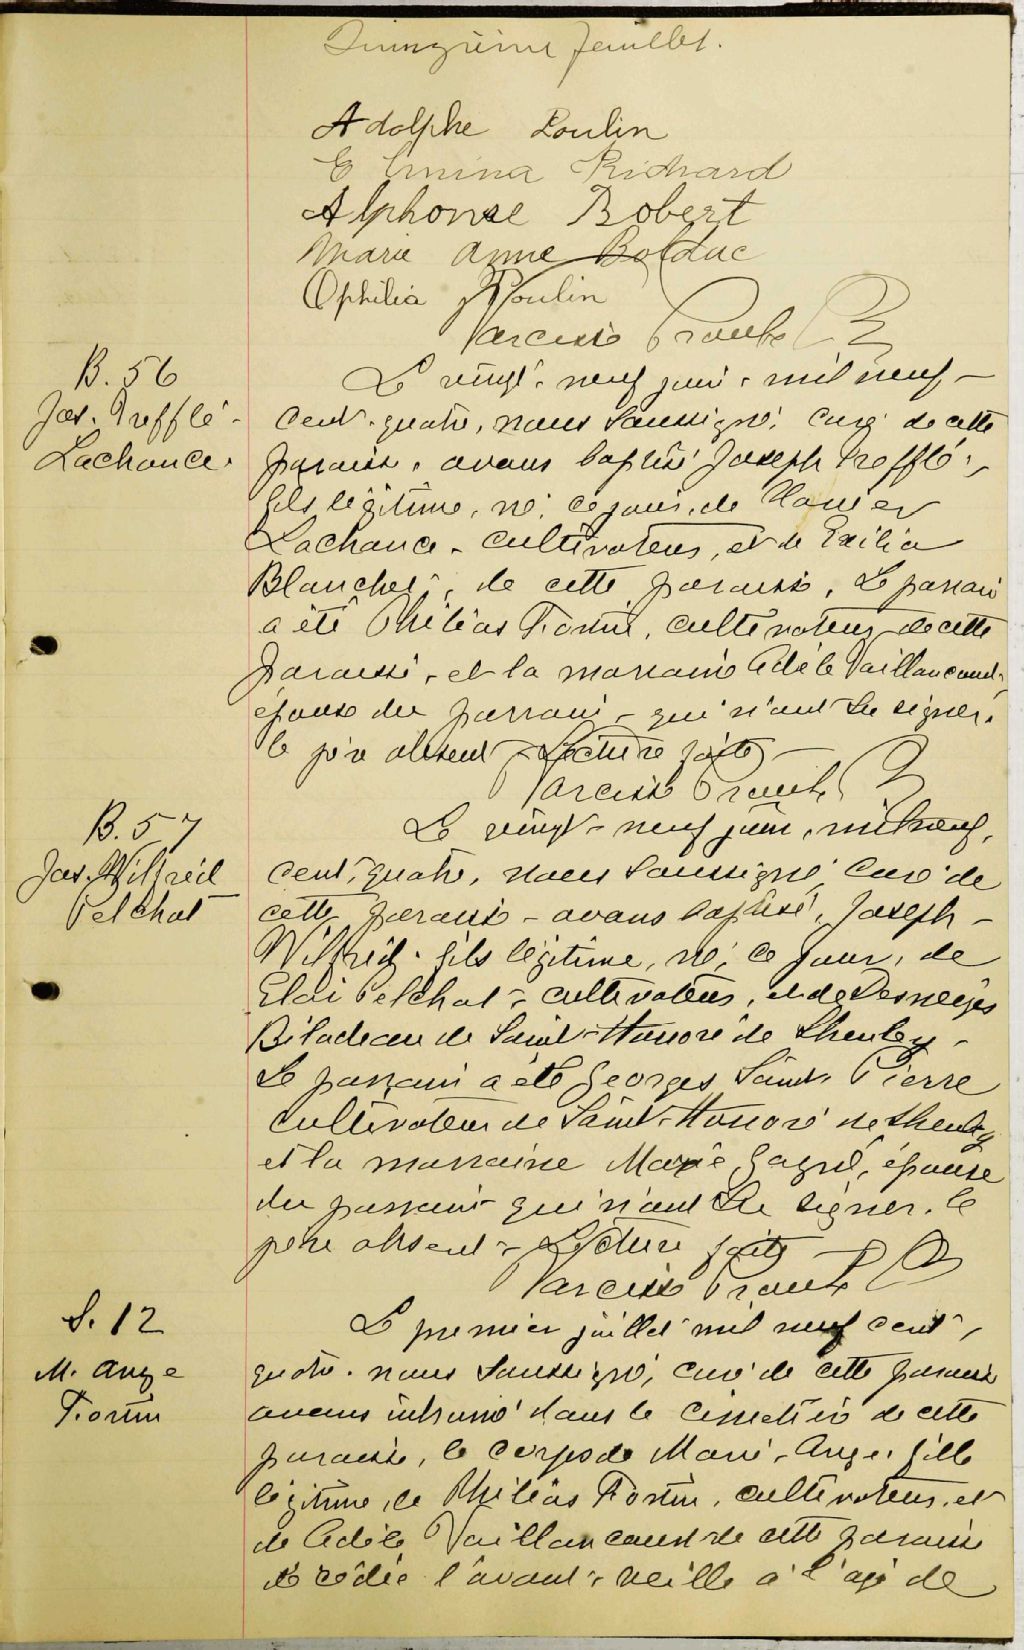 Quinzième feuillet.
Adolphe Poulin
Elmina Richard
Alphonse Robert
Marie Anne Bolduc
Ophilia Poulin
Narcisse Proulx Ptre
B. 56
Jos. Trefflé
Lachance.
Le vingt-neuf juin, mil neuf-
cent-quatre, nous soussigné, curé de cette
paroisse, avons baptisé Joseph Trefflé,
fils légitime, né, ce jour, de
Lachance, cultivateur, et de Exilia
Blanchet, de cette paroisse. Le parrain
a été Philias Fortin, cultivateur de cette
paroisse, et la marraine Adèle Vaillancourt,
épouse du parrain, qui n'ont su signer.
le père absent - Lecture faite -
Narcisse Proulx Ptre
B. 57
Jos. Wilfrid
Pelchat
Le vingt-neuf juin, mil neuf,
cent, quatre, nous soussigné curé de
cette paroisse - avons baptisé, Joseph -
Wilfrid, fils légitime, né, ce jour, de
Eloi Pelchat, cultivateur, et de Desneiges
Bilodeau de Saint-Honoré de Shenley -
Le parrain a été Georges Saint-Pierre
cultivateur de Saint-Honoré de Shenley
et la marraine Marie Gagné, épouse
du parrain qui n'ont su signer. le
père absent - Lecture faite -
Narcisse Proulx Ptre
S. 12
M. Ange
Fortin
Le premier juillet mil neuf cent,
quatre, nous soussigné, curé de cette paroisse
avons inhumé dans le cimetière de cette
paroisse, le corps de Marie-Ange, fille
légitime, de Philias Fortin, cultivateur, et
de Adèle Vaillancourt de cette paroisse
décédée l'avant-veille à l'age de